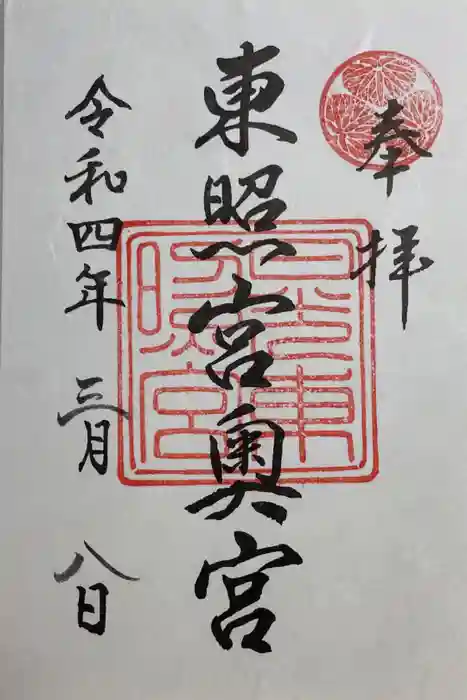 奉拝
東照宮奥宮
令和四年三月八日
日光東照宮